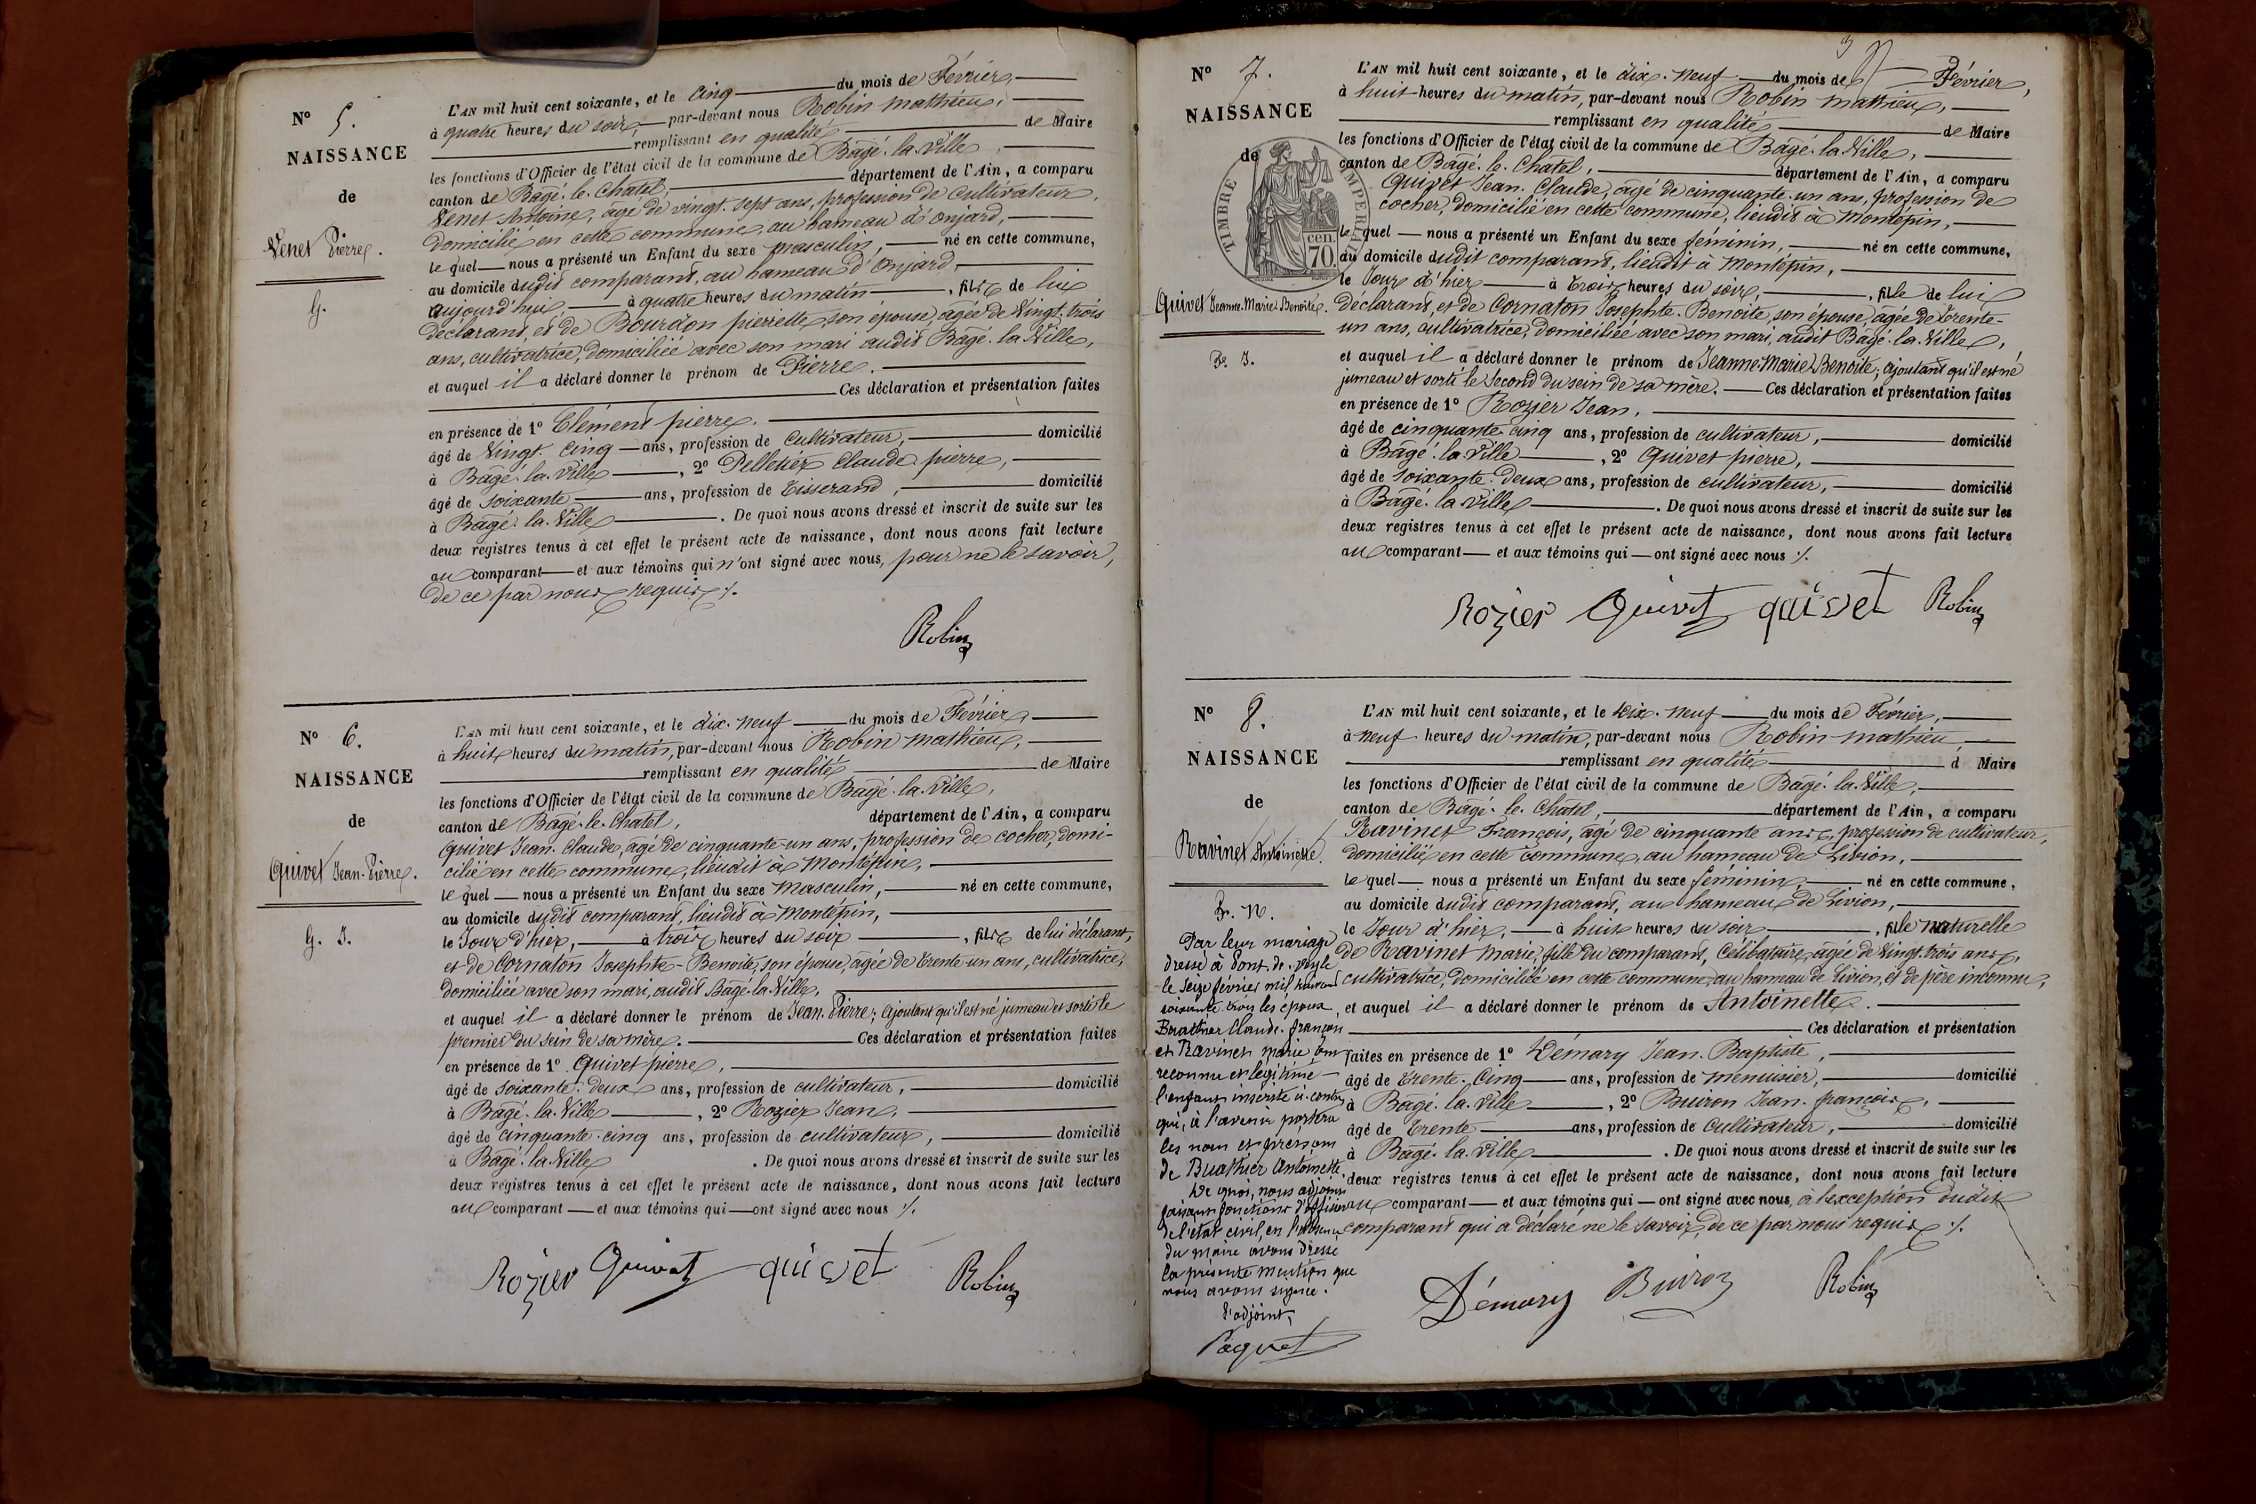 N° 5.
NAISSANCE
de
Venet Pierre.
G.
L'AN mil huit cent soixante, et le cinq du mois de Février,
à quatre heures du soir, par-devant nous Robin mathieu,
remplissant en qualité de Maire
les fonctions d'Officier de l'état civil de la commune de Bâgé-la-Ville,
canton de Bâgé-le-Chatel, département de l'Ain, a comparu
Venet Antoine, âgé de vingt-sept ans, profession de cultivateur,
domicilié en cette commune, au hameau d'Onjard,
lequel nous a présenté un Enfant du sexe masculin, né en cette commune,
au domicile dudit comparant, au hameau d'Onjard,
aujourd'hui à quatre heures du matin, fils de lui
déclarant, et de Bourdon pierrette, son épouse, âgée de Vingt-trois
ans, cultivatrice, domiciliée avec son mari audit Bâgé-la-Ville,
et auquel il a déclaré donner le prénom de Pierre.
Ces déclaration et présentation faites
en présence de 1° Clément pierre,
âgé de Vingt-Cinq ans, profession de Cultivateur, domicilié
à Bâgé-la-Ville, 2° Pelletier Claude pierre,
âgé de soixante ans, profession de Tisserand, domicilié
à Bâgé-la-Ville. De quoi nous avons dressé et inscrit de suite sur les
deux registres tenus à cet effet le présent acte de naissance, dont nous avons fait lecture
au comparant et aux témoins qui n'ont signé avec nous, pour ne le savoir,
de ce par nous requis ./.
Robin
N° 6.
NAISSANCE
de
Quivet Jean-Pierre.
G. J.
L'AN mil huit cent soixante, et le dix-neuf du mois de Février,
à huit heures du matin, par-devant nous Robin mathieu,
remplissant en qualité de Maire
les fonctions d'Officier de l'état civil de la commune de Bâgé-la-Ville,
canton de Bâgé-le-Chatel, département de l'Ain, a comparu
Quivet Jean-Claude, âgé de cinquante-un ans, profession de cocher, domi-
cilié en cette commune, lieudit à Montépin,
lequel nous a présenté un Enfant du sexe Masculin, né en cette commune,
au domicile dudit comparant, lieudit à Montépin,
le Jour d'hier, à trois heures du soir, fils de lui déclarant,
et de Cornaton Josephte-Benoite, son épouse, âgée de Trente-un ans, cultivatrice,
domiciliée avec son mari, audit Bâgé-la-Ville,
et auquel il a déclaré donner le prénom de Jean-Pierre; ajoutant qu'il est né jumeau et sorti le
premier du sein de sa mère. Ces déclaration et présentation faites
en présence de 1° Quivet pierre,
âgé de soixante-deux ans, profession de cultivateur, domicilié
à Bâgé-la-Ville, 2° Rozier Jean,
âgé de cinquante-cinq ans, profession de cultivateur, domicilié
à Bâgé-la-Ville. De quoi nous avons dressé et inscrit de suite sur les
deux registres tenus à cet effet le présent acte de naissance, dont nous avons fait lecture
au comparant et aux témoins qui ont signé avec nous ./.
Rozier Quivet quivet Robin
N° 7.
NAISSANCE
de
TIMBRE IMPERIAL
70 cen.
Quivet Jeanne-Marie-Benoite.
L'AN mil huit cent soixante, et le dix-neuf du mois de Février,
à huit heures du matin, par-devant nous Robin mathieu,
remplissant en qualité de Maire
les fonctions d'Officier de l'état civil de la commune de Bâgé-la-Ville,
canton de Bâgé-le-Châtel, département de l'Ain, a comparu
Quivet Jean-Claude, âgé de cinquante-un ans, profession de
cocher, domicilié en cette commune, lieudit à Montépin,
lequel nous a présenté un Enfant du sexe féminin, né en cette commune,
au domicile dudit comparant, lieudit à Montépin,
le Jour d'hier à trois heures du soir, fille de lui
déclarant, et de Cornaton Josephte-Benoite, son épouse, âgée de trente-
un ans, cultivatrice, domiciliée avec son mari, audit Bâgé-la-Ville,
et auquel il a déclaré donner le prénom de Jeanne-Marie-Benoite; ajoutant qu'il est né
jumeau et sorti le second du sein de sa mère. Ces déclaration et présentation faites
en présence de 1° Rozier Jean,
âgé de cinquante-cinq ans, profession de cultivateur, domicilié
à Bâgé-la-Ville, 2° Quivet pierre,
âgé de soixante-deux ans, profession de cultivateur, domicilié
à Bâgé-la-Ville. De quoi nous avons dressé et inscrit de suite sur les
deux registres tenus à cet effet le présent acte de naissance, dont nous avons fait lecture
au comparant et aux témoins qui ont signé avec nous ./.
Rozier Quivet quivet Robin
N° 8.
NAISSANCE
de
Ravinet Antoinette.
Par leur mariage
dressé à Pont-de-Veyle
le seize février mil huit cent
soixante trois les époux
Buathier Claude-françois
et Ravinet marie ont
reconnu et légitimé
l'enfant inscrite ci-contre
qui, à l'avenir portera
les nom et prénom
de Buathier Antoinette.
De quoi, nous adjoint
faisant fonctions d'officier
de l'état civil, en l'absence
du maire avons dressé
la présente mention que
nous avons signée.
L'adjoint,
Paquet
L'AN mil huit cent soixante, et le dix-neuf du mois de Février,
à neuf heures du matin, par-devant nous Robin mathieu
remplissant en qualité d Maire
les fonctions d'Officier de l'état civil de la commune de Bâgé-la-Ville,
canton de Bâgé-le-Chatel, département de l'Ain, a comparu
Ravinet François, âgé de cinquante ans, profession de cultivateur,
domicilié en cette commune, au hameau de Livion,
lequel nous a présenté un Enfant du sexe féminin, né en cette commune,
au domicile dudit comparant, au hameau de Livion,
le Jour d'hier, à huit heures du soir, fille naturelle
de Ravinet Marie, fille du comparant, Célibataire, âgée de Vingt-trois ans,
cultivatrice, domiciliée en cette commune, au hameau de Livion, et de père inconnu,
et auquel il a déclaré donner le prénom de Antoinette.
Ces déclaration et présentation
faites en présence de 1° Démary Jean-Baptiste,
âgé de trente-cinq ans, profession de menuisier, domicilié
à Bâgé-la-Ville, 2° Buiron Jean-françois,
âgé de trente ans, profession de Cultivateur, domicilié
à Bâgé-la-Ville. De quoi nous avons dressé et inscrit de suite sur les
deux registres tenus à cet effet le présent acte de naissance, dont nous avons fait lecture
au comparant et aux témoins qui ont signé avec nous, à l'exception dudit
comparant qui a déclaré ne le savoir, de ce par nous requis ./.
Démary Buiron Robin